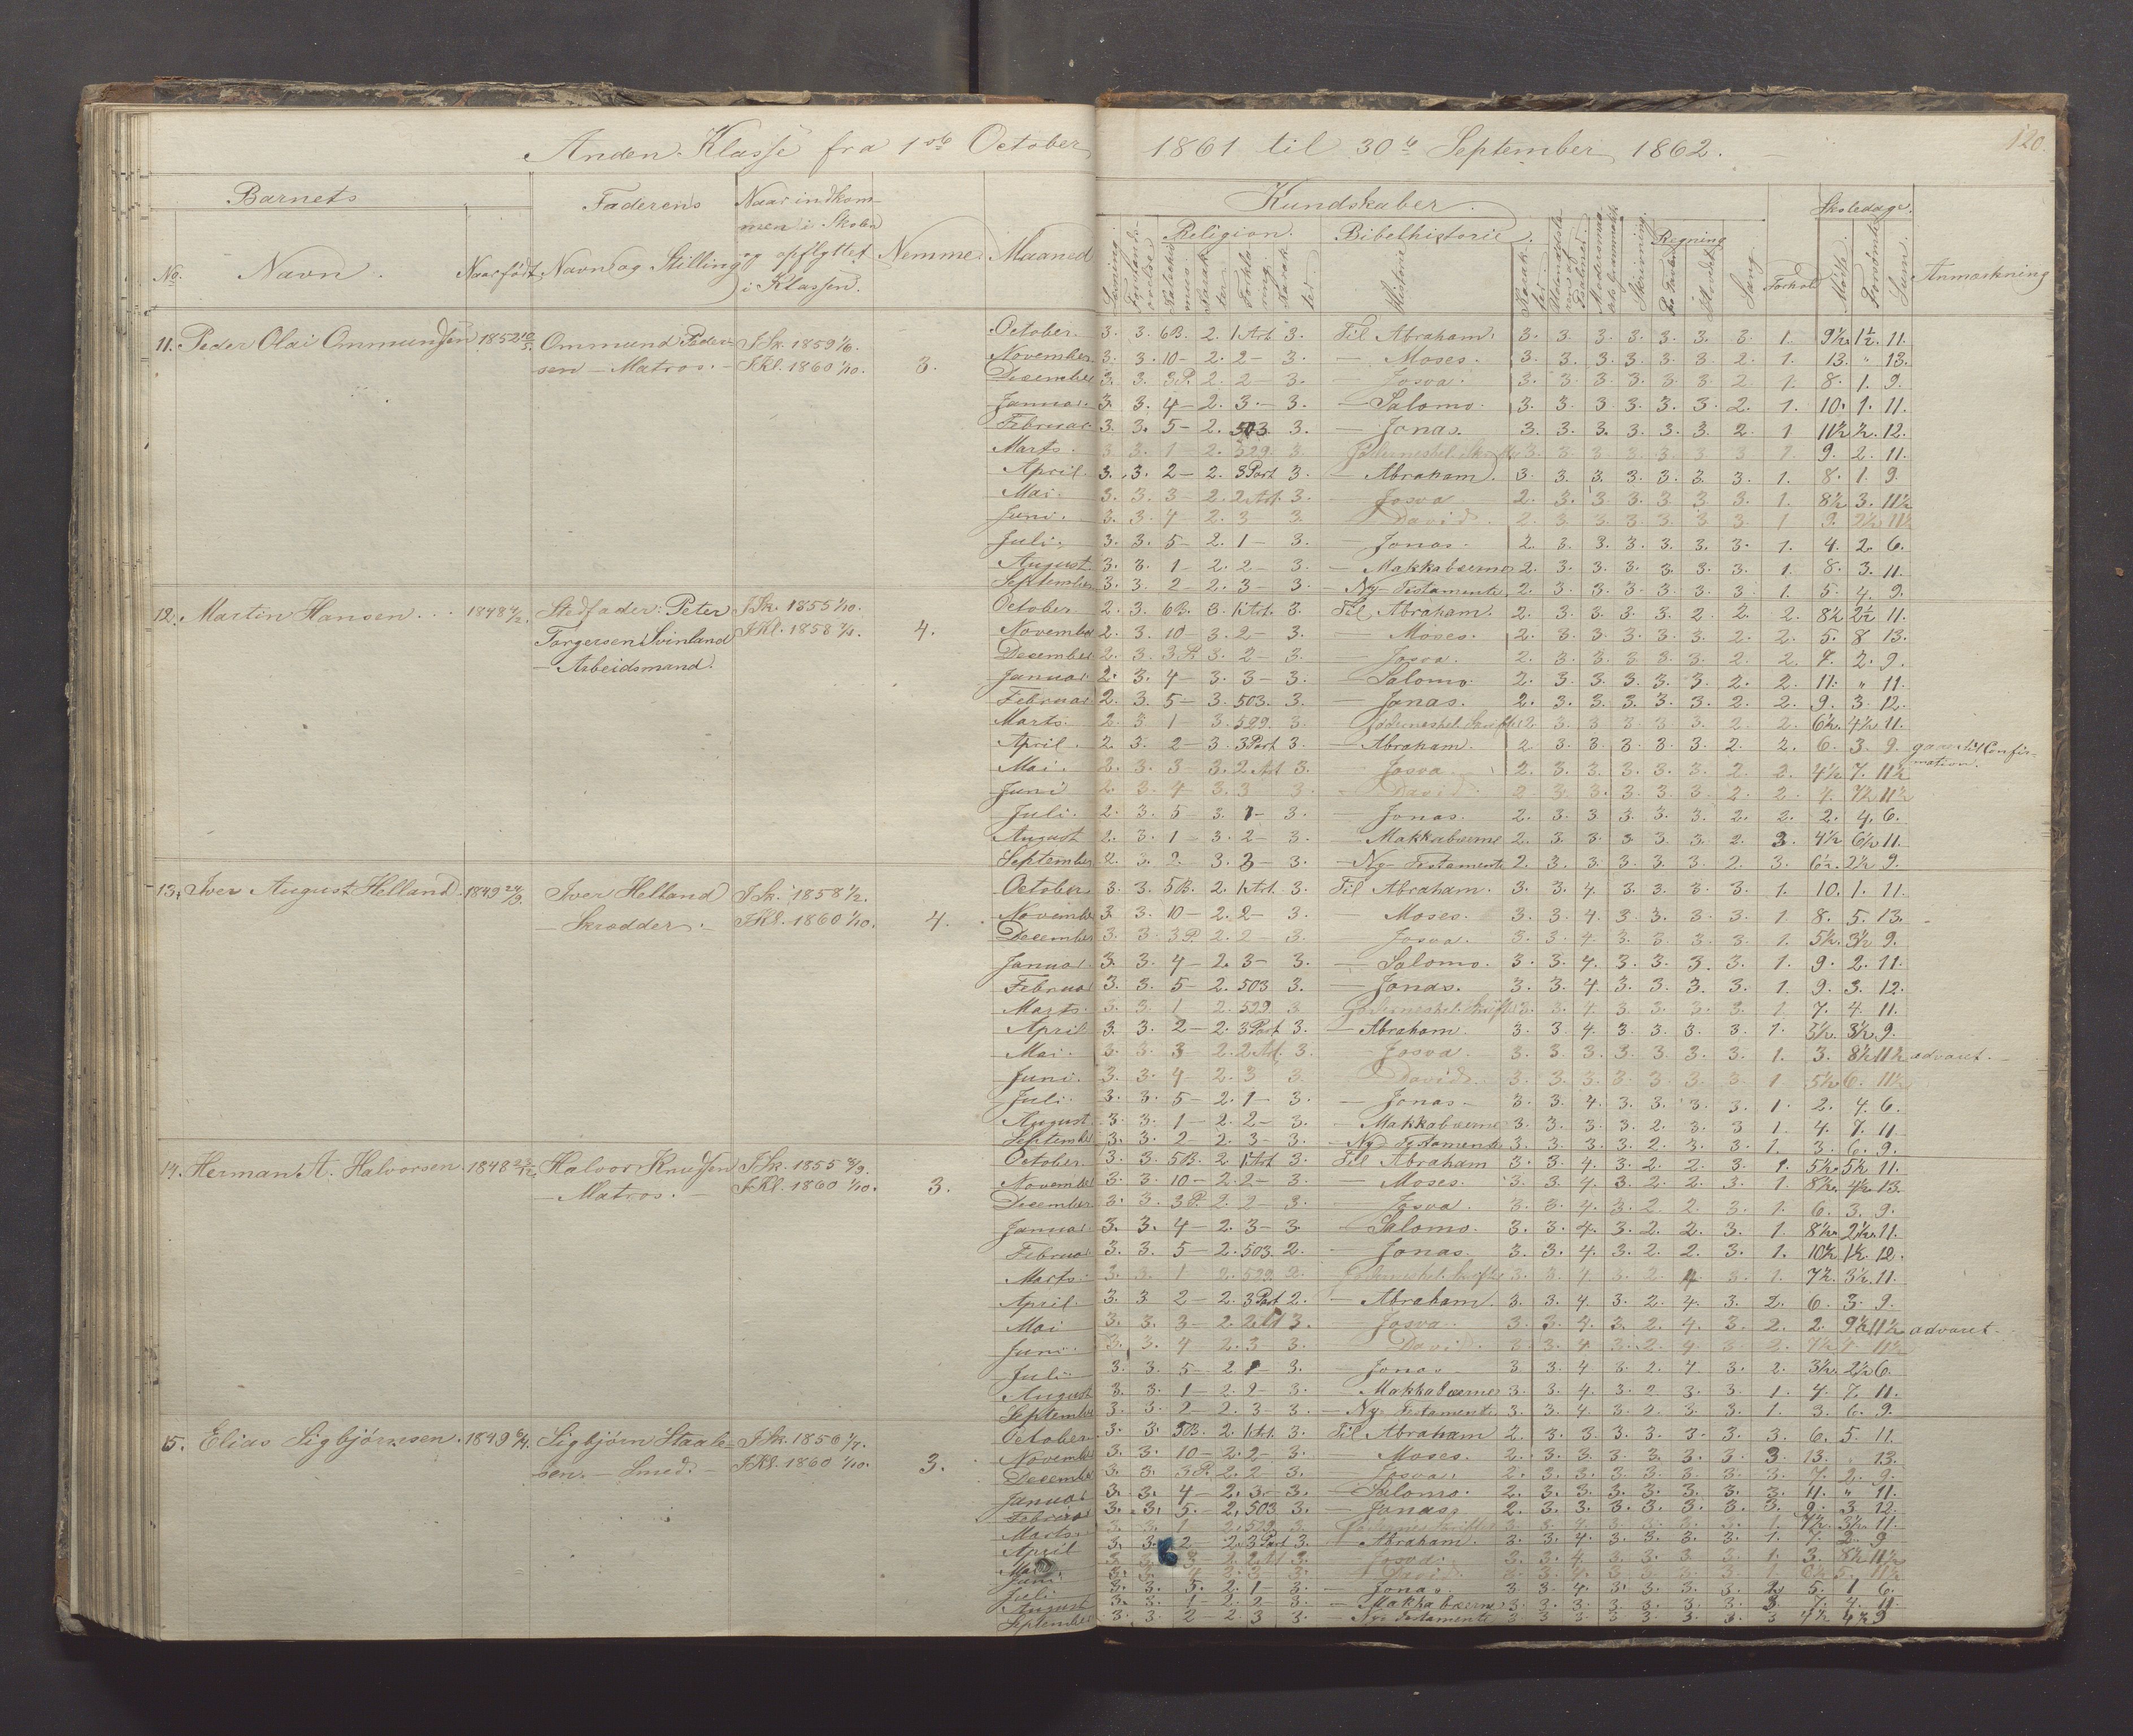 Anden Klasse fra 1ste October 1861 til 30te September 1862.
120.
Barnets
Faderens
Naar indkom-
men i Skolen
og opflyttet
i Klassen.
Nemme
Maaned
No.
Navn.
Naar født
Navn og Stilling
Kundskaber.
Religion.
Bibelhistorie.
Historie
Skrivning
Regning
Sang
Forhold
Skoledage.
Mødte.
Forsømte
Sum.
Anmærkning
11. Peder Olai Ommundsen 1852
Ommund Peder-
sen - Matros. -
I Sk. 1859
I Kl. 1860 1/10.
3.
October. 3. 3. 6B. 2. 1 Art. 3. Til Abraham. 3. 3. 3. 3. 3. 3. 3. 1. 9½ 1½ 11.
November. 3. 3. 10 - 2. 2 - 3. - Moses. 3. 3. 3. 3. 3. 3. 2. 1. 13. " 13.
December 3. 3. 3P. 2. 2 - 3. - Josva. 3. 3. 3. 3. 3. 3. 2. 1. 8. 1. 9.
Januar. 3. 3. 4 - 2. 3. - 3. - Salomo. 3. 3. 3. 3. 3. 3. 2. 1. 10. 1. 11.
Februar. 3. 3. 5 - 2. 503 3. - Jonas. 3. 3. 3. 3. 3. 3. 2. 1 11½ ½. 12.
Marts. 3. 3. 1 - 2. 529. 3. 3. 3. 3. 3. 3. 3. 3. 1. 9. 2. 11.
April. 3. 3. 2 - 2. 3 Part 3. - Abraham. 3. 3. 3. 3. 3. 3. 3. 1. 8. 1. 9.
Mai. 3. 3. 3 - 2. 2 Art. 3. - Josva 2. 3. 3. 3. 3. 3. 3. 1. 8½ 3. 11½
Juni. 3. 3. 4 - 2. 3 - 3. - David. 2. 3. 3. 3. 3. 3. 3. 1 9. 2½ 11½
Juli. 3. 3. 5 - 2. 1 - 3. - Jonas. 2. 3. 3. 3. 3. 3. 3. 1. 4. 2. 6.
August. 3. 3. 1 - 2. 2 - 3. - Makkabæerne 2. 3. 3. 3. 3. 3. 3. 1. 8. 3. 11.
September 3. 3. 2 2. 3 - 3. - Ny-Testamente. 2. 3. 3. 3. 3. 3. 3. 1. 5. 4. 9.
12. Martin Hansen. 1848
Stedfader: Peter
Torgersen Svinland
- Arbeidsmand.
I Sk. 1855 1/10.
I Kl. 1858
4.
October 2. 3. 6B. 3. 1 Art. 3. Til Abraham. 2. 3. 3. 3. 3. 2. 2. 2. 8½ 2½ 11.
November 2. 3. 10 - 3. 2 - 3. - Moses. 2. 3. 3. 3. 3. 3. 2. 2. 5. 8 13.
December. 2. 3. 3P. 3. 2 - 3. - Josva. 2. 3. 3. 3. 3. 3. 2. 2. 7. 2. 9.
Januar. 2. 3. 4 - 3. 3 - 3. - Salomo. 2. 3. 3. 3. 3. 3. 2. 2. 11. " 11.
Februar 2. 3. 5 - 3. 503. 3. - Jonas. 2. 3. 3. 3. 3. 3. 2. 2. 9. 3. 12.
Marts. 2. 3 1 - 3. 529. 3. 2. 3. 3. 3. 3. 3. 2. 2. 6½. 4½ 11.
April. 2. 3. 2 - 3. 3 Part 3. - Abraham. 2 3. 3. 3. 3. 3. 2. 2. 6. 3. 9. gaaer til Confir-
mation.
Mai. 2. 3. 3 - 3. 2 Art 3. - Josva. 2. 3. 3. 3. 3. 3. 2. 2. 4½ 7. 11½
Juni 2. 3. 4 - 3. 3 3. - David. 2 3. 3. 3. 3. 3. 2. 2. 4. 7½ 11½
Juli. 2. 3. 5 - 3. 1 - 3. - Jonas. 2. 3. 3. 3. 3. 3. 2. 2. 2. 4. 6.
August 2. 3. 1 - 3. 2 - 3. - Makkabæerne 2. 3. 3. 3. 3. 3. 2. 3. 4½ 6½ 11.
September 2. 3. 2. 3. 3 - 3. - Ny-Testamente 2. 3. 3. 3. 3. 3. 2. 3. 6½. 2½ 9.
13. Iver August Helland. 1849
Iver Helland
- Skrædder. -
I Sk. 1858 1/2.
I Kl. 1860 1/10.
4.
October 3. 3. 5B. 2. 1 Art. 3. Til Abraham. 3. 3. 4. 3. 3. 3. 3. 1. 10. 1. 11.
November 3. 3. 10 - 2. 2 - 3. - Moses. 3. 3. 4. 3. 3. 3. 3. 1 8. 5. 13.
December 3. 3. 3P. 2. 2 - 3. - Josva. 3. 3. 4. 3. 3. 3. 3. 1. 5½. 3½ 9.
Januar. 3. 3. 4 - 2. 3 - 3. - Salomo. 3. 3. 4. 3. 3. 3. 3. 1. 9. 2. 11.
Februar 3. 3. 5 - 2. 503 3. - Jonas. 3. 3. 4. 3. 3. 3. 3. 1. 9. 3. 12.
Marts. 3. 3. 1 2. 529. 3 3. 3. 4. 3. 3. 3. 3. 1. 7. 4. 11.
April 3. 3. 2 - 2. 3 Part 3. - Abraham. 3. 3. 4. 3. 3. 3. 3. 1. 5½. 3½ 9.
Mai. 3. 3. 3 2. 2 Art. 3. - Josva. 3. 3. 3. 3. 3. 3. 3. 1. 3. 8½ 11½ advaret. -
Juni. 3. 3. 4 - 2. 3 3. - David. 3. 3. 3. 3. 3. 3. 3. 1 5½ 6. 11½
Juli. 3. 3. 5 - 2. 1 - 3. - Jonas - 3. 3. 4. 3. 3. 3. 3. 1. 2. 4. 6.
August. 3. 3. 1 - 2. 2 - 3. - Makkabæerne 3. 3. 3. 3. 2. 3. 3 1. 4. 7. 11.
September 3. 3. 2 - 2. 3 - 3. - Ny-Testamente 3. 3. 3. 3. 2. 3. 3. 1. 3. 6. 9.
14. Herman A. Halvorsen. 1848
Halvor Knudsen
- Matros. -
I Sk. 1855
I Kl. 1860 1/10.
3.
October. 3. 3. 5B. 2 1 Art 3. Til Abraham 3. 3. 4. 3. 2. 2. 3. 1. 5½. 5½ 11.
November 3. 3. 10 - 2. 2 - 3. - Moses. 3. 3. 4. 3. 2. 2. 3. 1. 8½. 4½. 13.
December 3. 3. 3P. 2. 2 - 3. - Josva. 3. 3. 4. 3. 2. 2. 3. 1. 6. 3. 9.
Januar. 3. 3. 4 - 2. 3 - 3 - Salomo. 3. 3. 4. 3. 2. 2. 3. 1 8½. 2½. 11.
Februar 3. 3. 5 - 2. 503. 2. - Jonas. 3. 3. 4. 3. 2. 2. 3. 1. 10½ 1½. 12.
Marts. 3. 3. 1 - 2. 529. 2. 3. 3. 4. 3. 2. 4. 3. 1. 7½. 3½. 11.
April. 3. 3 2 - 2. 3 Part 2. - Abraham. 3. 3. 4. 3. 2. 4. 3. 2. 6. 3. 9.
Mai 3. 3. 3 - 2. 2 Art 3. - Josva. 3. 3. 4. 3. 2. 4. 3. 2. 2. 9½ 11½ advaret. -
Juni. 3. 3. 4 - 2. 3 - 3. - David. 3. 3. 4. 3. 2. 4. 3. 2.
Juli 3. 3. 5 - 2 1 - 3. - Jonas 3 3. 4. 3. 2. 4. 3. 2. 3½. 2½ 6.
August 3. 3. 1 - 2. 2 - 3. - Makkabæerne 3. 3. 4. 3. 2 3. 3. 1. 4. 7. 11.
September 3. 3. 2 - 2. 3 - 3. - Ny-Testamente 3. 3. 4. 3. 2. 3. 3. 1. 3. 6. 9.
15. Elias Sigbjørnsen. 1849
Sigbjørn Staale-
sen. - Smed. -
I Sk. 1856
I Kl. 1860 1/10.
3.
October. 3. 3. 5B. 2. 1 Art. 3. Til Abraham 2. 3. 3. 3. 3. 3. 3. 3. 6. 5. 11.
November 3. 3. 10 - 2. 2 - 3. Moses. 2. 3. 3. 3. 3. 3. 3. 3 13. 13.
December 3. 3. 3P. 2. 2 3. Josva. 2. 3. 3. 3. 3. 3. 3. 3. 7. 2. 9.
Januar 3. 3. 4 - 2. 3. - 3. - Salomo. 2. 3. 3. 3. 3. 3. 3. 3. 11. " 11.
Februar 3. 3. 5. - 2. 503 3. - Jonas. 2. 3. 3. 3. 3. 3. 3. 3. 9. 3. 12.
Marts. 3. 3. 1 2. 529. 3.
April 3. 3. 2 - 2. 3 Part 3. - Abraham. 3. 3. 4. 3. 3. 3. 3. 1. 7. 2. 9
Mai - Josva.
Juni. David.
Juli 3. 3. 5. 2. 1 - 3. - Jonas. 3. 3. 4. 3. 3. 3. 3. 2. 5. 1 6.
August 3. 3. 1 - 2. 2 3. - Makkabæerne 3. 3. 3. 3. 3. 3. 3. 3. 7. 4. 11.
September 3. 3. 2 - 2. 3 3. - Ny-Testamente 3 3 3 3 3. 3. 3. 3 4½ 4½ 9